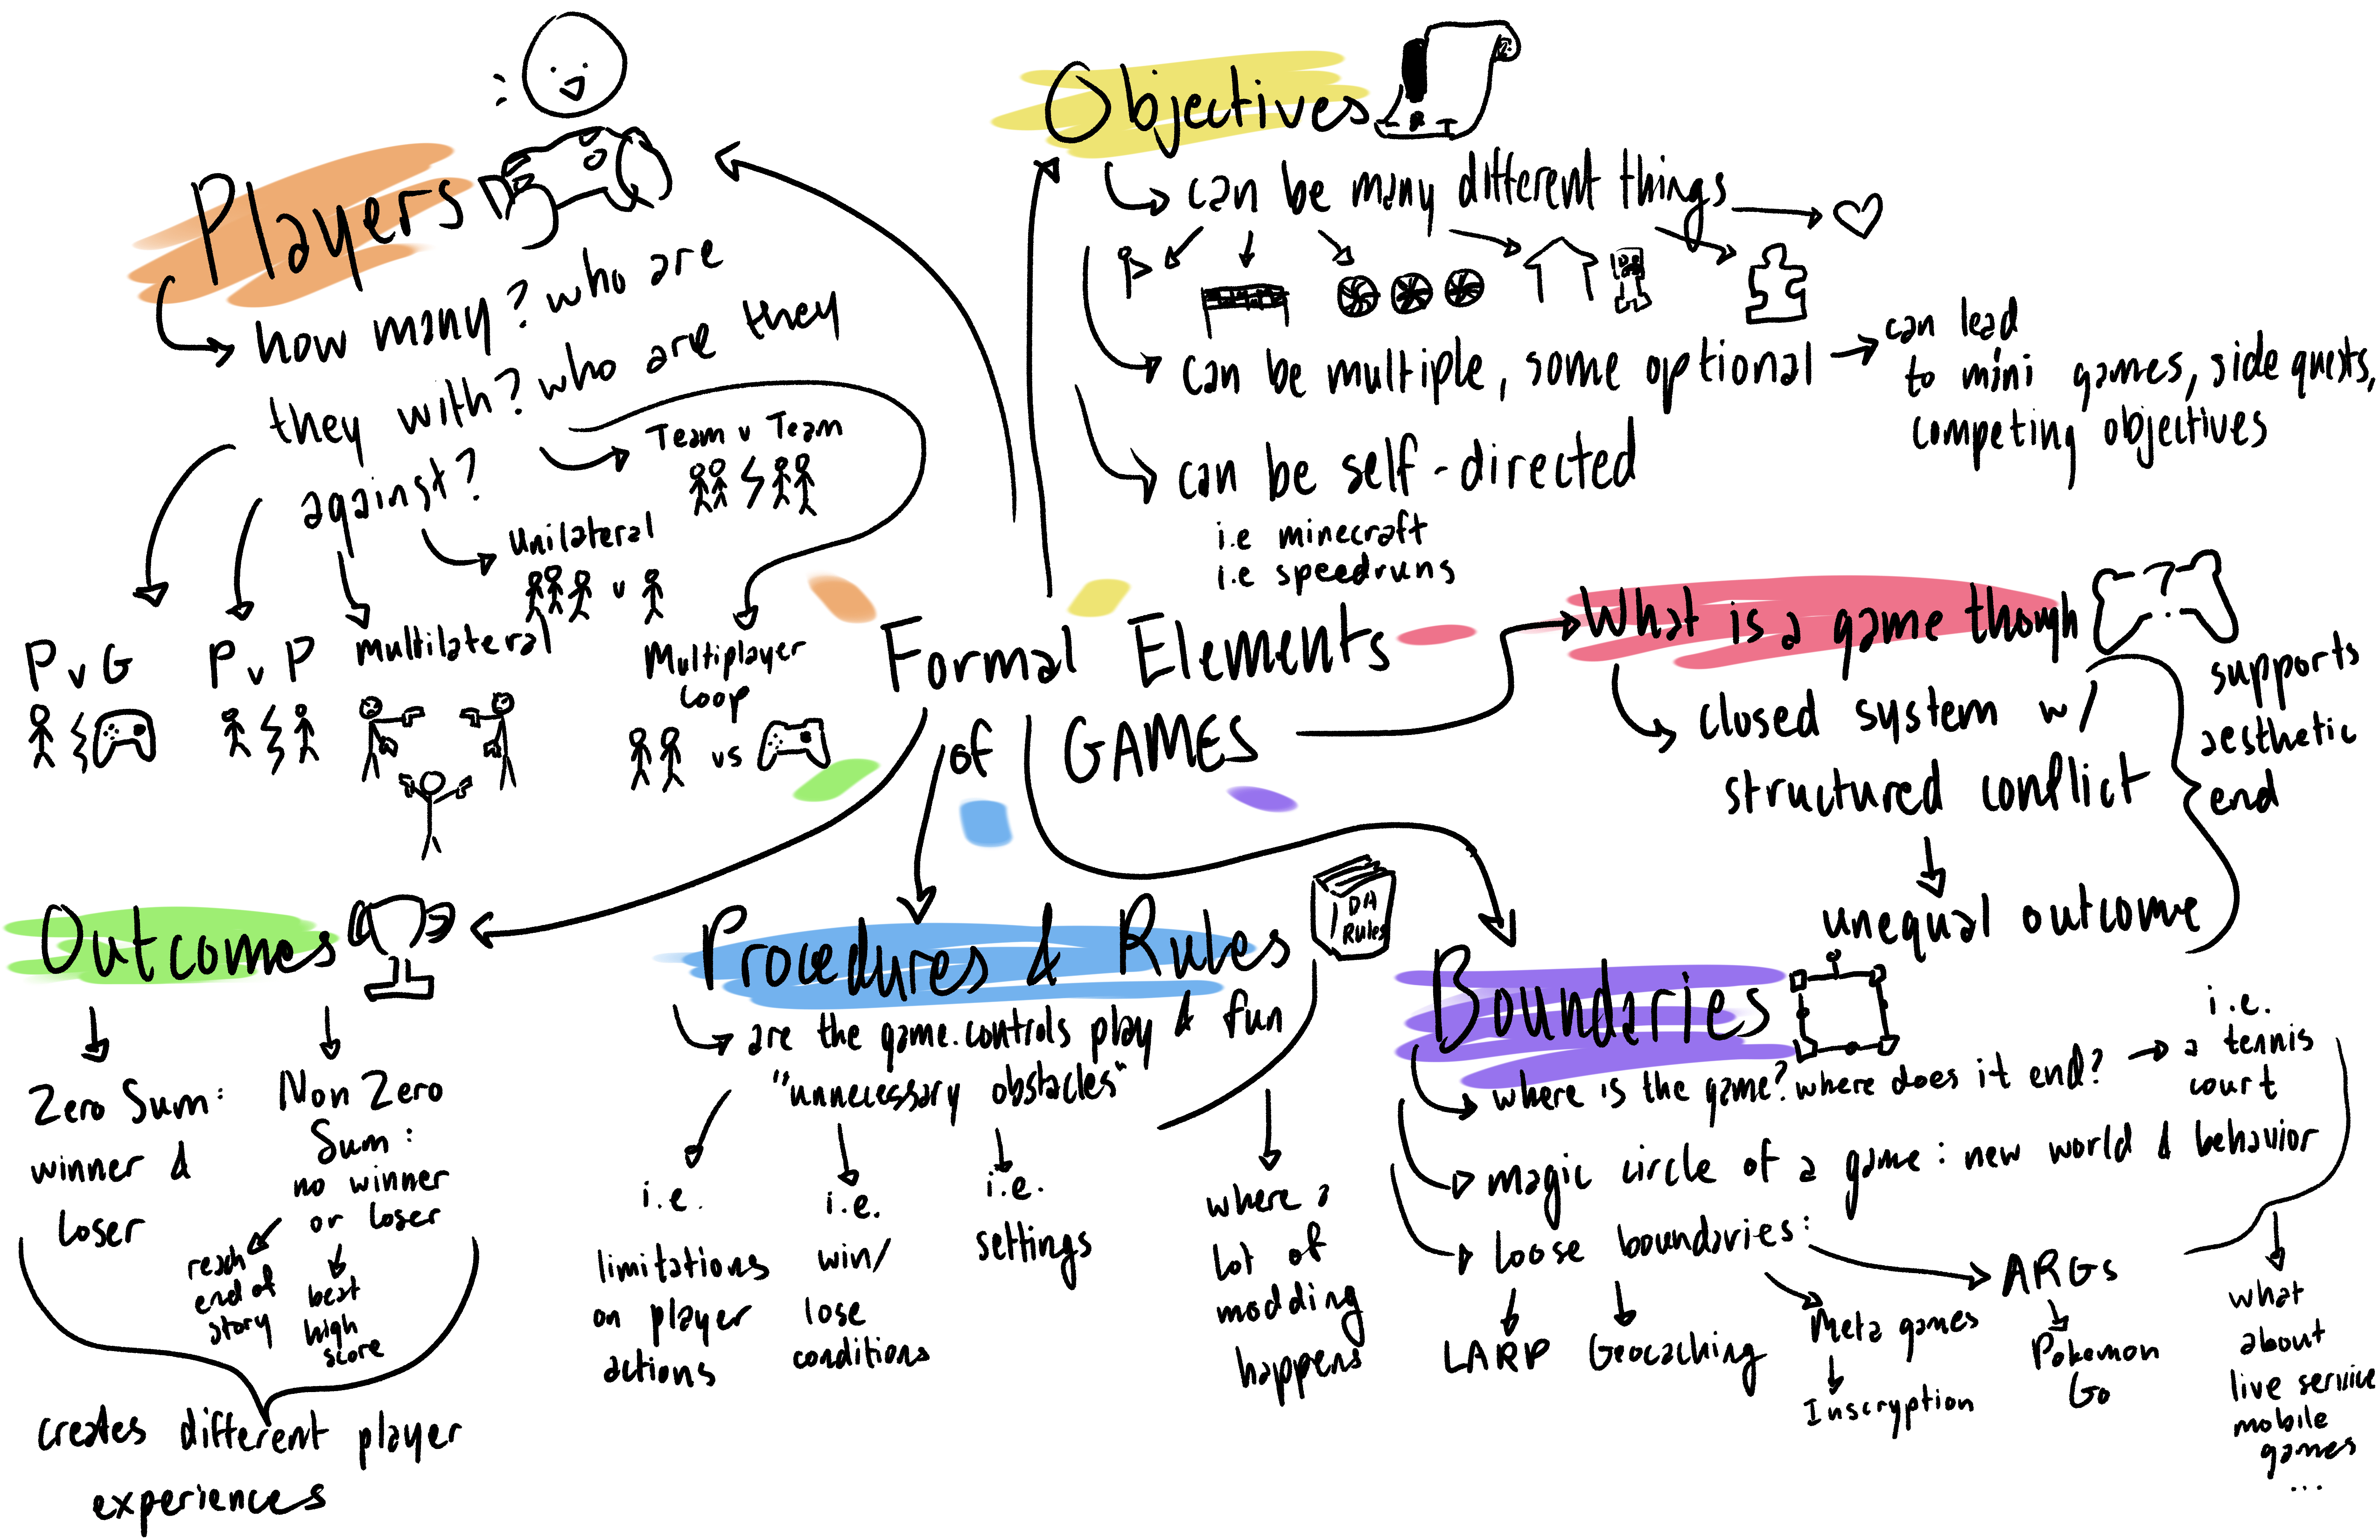 Players
how many? who are
they with? who are they
against?
Team v Team
Unilateral
v
PvG
PvP
Multilateral
Multiplayer
Loop
vs
Objectives
can be many different things
can be multiple, some optional
can lead
to mini games, side quests,
competing objectives
can be self-directed
i.e minecraft
i.e speedruns
Formal Elements
of GAMES
What is a game though
?
closed system w/
structured conflict
unequal outcome
supports
aesthetic
end
Outcomes
Zero Sum:
winner &
loser
Non Zero
Sum:
no winner
or loser
reach
end of
story
beat
high
score
creates different player
experiences
Procedures & Rules
DA
Rules
are the game. controls play & fun
"unnecessary obstacles"
i.e.
limitations
on player
actions
i.e.
win/
lose
conditions
i.e.
settings
where a
lot of
modding
happens
Boundaries
where is the game? where does it end?
i.e.
a tennis
court
magic circle of a game: new world & behavior
loose boundaries:
LARP
Geocaching
Meta games
Inscryption
ARGs
Pokemon
Go
what
about
live service
mobile
games
...